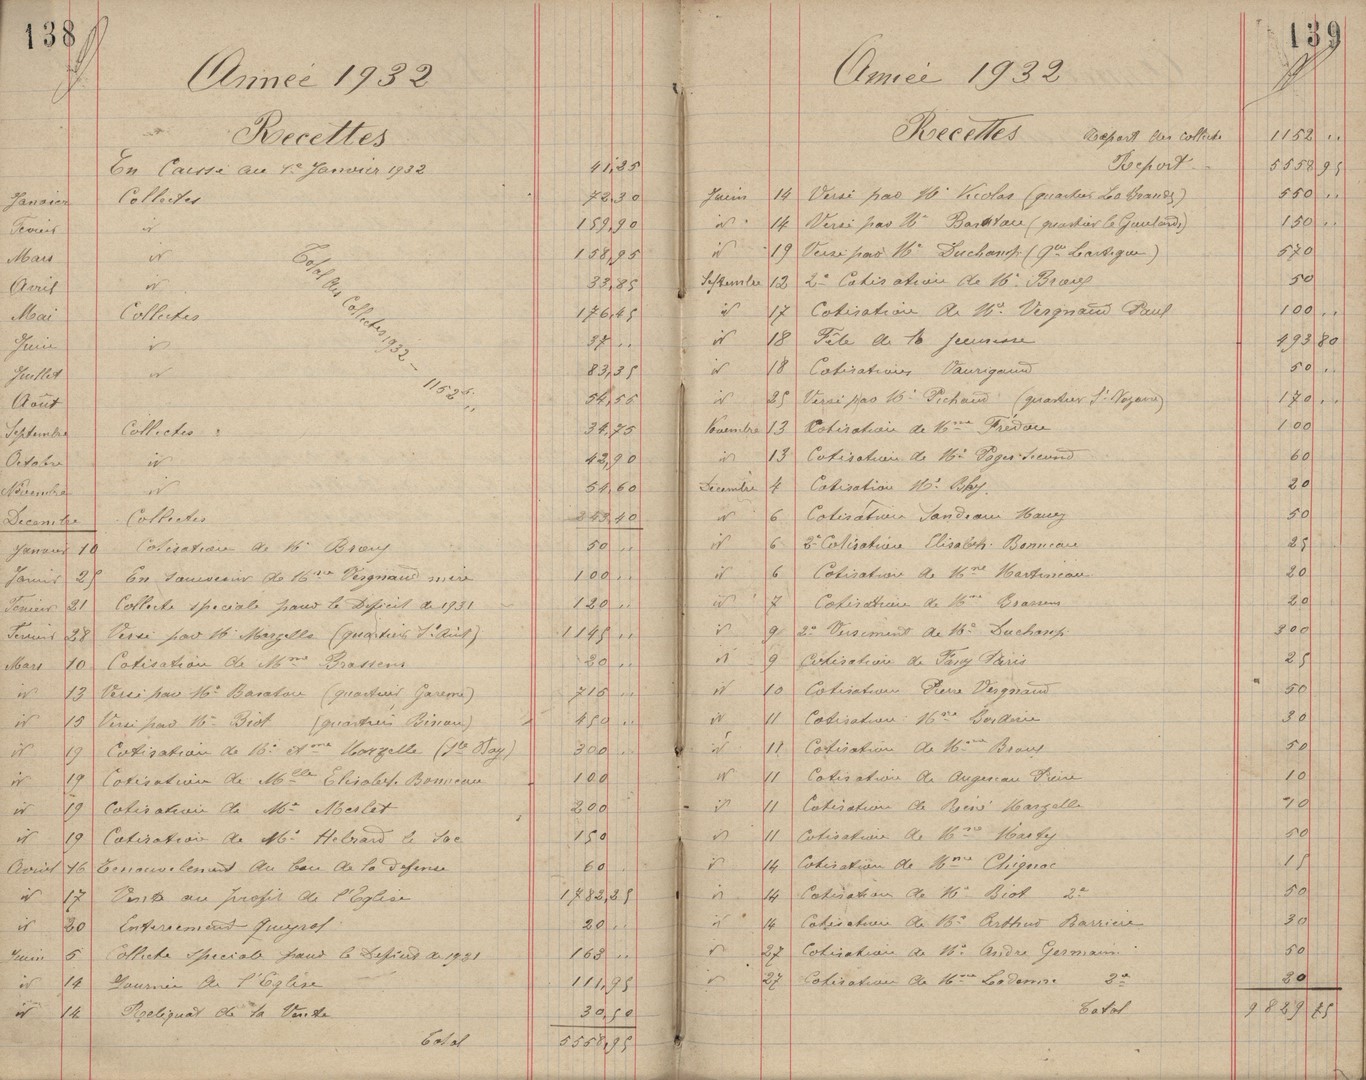 138
Année 1932
Recettes
En Caisse au 1er Janvier 1932 41,25
Janvier Collectes 72,30
Fevrier id 159,90
Mars id 158,95
Avril id 33,85
Mai Collectes 176,45
Juin id 37 ..
Juillet id 83,35
Août 54,55
Septembre Collectes 34,75
Octobre id 42,90
Novembre id 54,60
Decembre Collectes 243,40
Total des Collectes 1932 — 1152
Janvier 10 Cotisation de Mr Broux 50 ..
Janvier 25 En souvenir de Mme Vergnaud mère 100 ..
Fevrier 21 Collecte speciale pour le Deficit de 1931 120 ..
Fevrier 28 Versé par Mr Marzelle 1145 ..
Mars 10 Cotisation de Mme Brassens 20 ..
id 13 Versé par Mr Baratou (quartier Garenne) 715 ..
id 15 Versé par Mr Biot (quartier Binou) 450 ..
id 19 Cotisation de Mr et Mme Marzelle 300 ..
id 19 Cotisation de Melle Elisabeth Bonneau 100
id 19 Cotisation de Mr Meslet 200
id 19 Cotisation de Mr Hebrard 150
Avril 16 Renouvellement du bon de la Defense 60 .
id 17 Vente au profit de l'Eglise 1782,25
id 20 Enterrement Queyrol 20 ..
Juin 5 Collecte speciale pour le Deficit de 1931 163 ..
id 14 Journée de l'Eglise 111,95
id 14 Reliquat de la Vente 30,50
Total 5558,95
139
Année 1932
Recettes Report des collecte 1152 ..
Report 5558 95
Juin 14 Versé par Mr Nicolas 550 ..
id 14 Versé par Mr Baratou 150 ..
id 19 Versé par Mr Duchamp 570
Septembre 12 2e Cotisation de Mr Broux 50
id 17 Cotisation de Mr Vergnaud Paul 100 ..
id 18 Fête de la Jeunesse 493 80
id 18 Cotisations Vaurigaud 50 ..
id 25 Versé par Mr Pichaud 170 ..
Novembre 13 Cotisation de Mme Frédou 100
id 13 Cotisation de Mr 60
Decembre 4 Cotisation Mr 20
id 6 Cotisation Sandeau 50
id 6 2e Cotisation Elisabeth Bonneau 25
id 6 Cotisation de Mme Martineau 20
id 7 Cotisation de Mme Brassens 20
id 9 2e Versement de Mr Duchamp 300
id 9 Cotisation de Fany Paris 25
id 10 Cotisation Pierre Vergnaud 50
id 11 Cotisation Mme 30
id 11 Cotisation de Mme Broux 50
id 11 Cotisation de Augereau 10
id 11 Cotisation de René Marzelle 10
id 11 Cotisation de Mme 50
id 14 Cotisation de Mme Chignac 15
id 14 Cotisation de Mr Biot 2e 50
id 14 Cotisation de Mr Arthur Barriere 30
id 27 Cotisation de Mr André Germain 50
id 27 Cotisation de Mme 2e 20
Total 9829 75